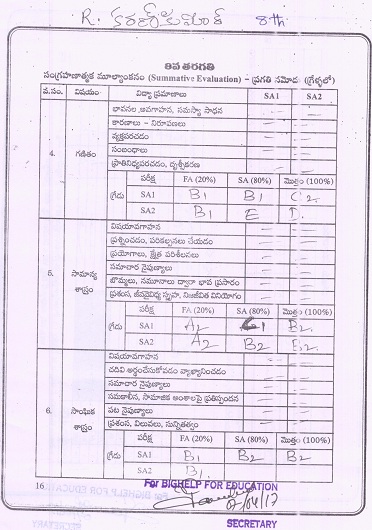 R. కరణ్ కుమార్ 8th
8వ తరగతి
సంగ్రహణాత్మక మూల్యాంకనం (Summative Evaluation) - ప్రగతి నమోదు (గ్రేళ్లలో)
వ.సం. విషయం విద్యా ప్రమాణాలు SA1 SA2
భావనల అవగాహన, సమస్యా సాధన
కారణాలు - నిరూపణలు
వ్యక్తపరచడం
సంబంధాలు
4. గణితం ప్రాతినిధ్యపరచడం, దృశ్యీకరణ
పరీక్ష FA (20%) SA (80%) మొత్తం (100%)
గ్రేడు SA1 B1 B1 C2
SA2 B1 E D
విషయావగాహన
ప్రశ్నించడం, పరికల్పనలు చేయడం
ప్రయోగాలు, క్షేత్ర పరిశీలనలు
సమాచార నైపుణ్యాలు
5. సామాన్య శాస్త్రం బొమ్మలు, నమూనాలు ద్వారా భావ ప్రసారం
ప్రశంస, జీవవైవిధ్య స్పృహ, నిజజీవిత వినియోగం
పరీక్ష FA (20%) SA (80%) మొత్తం (100%)
గ్రేడు SA1 A2 C1 B2
SA2 A2 B2 B2
విషయావగాహన
చదివి అర్థంచేసుకోవడం వ్యాఖ్యానించడం
సమాచార నైపుణ్యాలు
సమకాలీన, సామాజిక అంశాలపై ప్రతిస్పందన
6. సాంఘిక శాస్త్రం పట నైపుణ్యాలు
ప్రశంస, విలువలు, సున్నితత్వం
పరీక్ష FA (20%) SA (80%) మొత్తం (100%)
గ్రేడు SA1 B1 B2 B2
SA2 B1
16 For BIGHELP FOR EDUCATION
SECRETARY